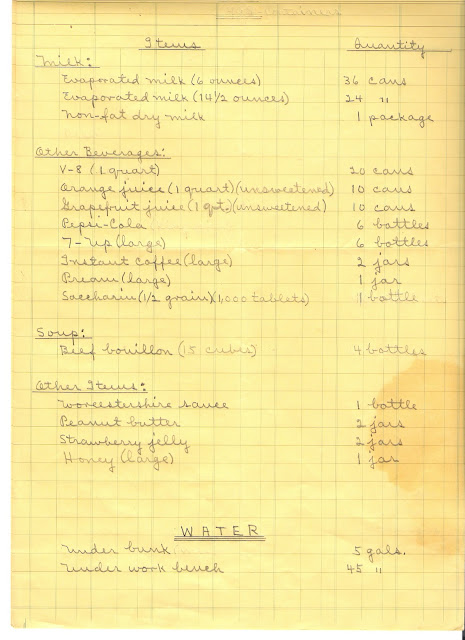 Items Quantity
Milk:
Evaporated milk (6 ounces) 36 cans
Evaporated milk (14 1/2 ounces) 24 "
Non-fat dry milk 1 package
Other Beverages:
V-8 (1 quart) 20 cans
Orange juice (1 quart) (unsweetened) 10 cans
Grapefruit juice (1 qt.) (unsweetened) 10 cans
Pepsi-Cola 6 bottles
7-Up (large) 6 bottles
Instant coffee (large) 2 jars
Pream (large) 1 jar
Saccharin (1/2 grain) (1,000 tablets) 1 bottle
Soup:
Beef bouillon (15 cubes) 4 bottles
Other Items:
Worcestershire sauce 1 bottle
Peanut butter 2 jars
Strawberry jelly 2 jars
Honey (large) 1 jar
WATER
Under bunk 5 gals.
Under work bench 45 "